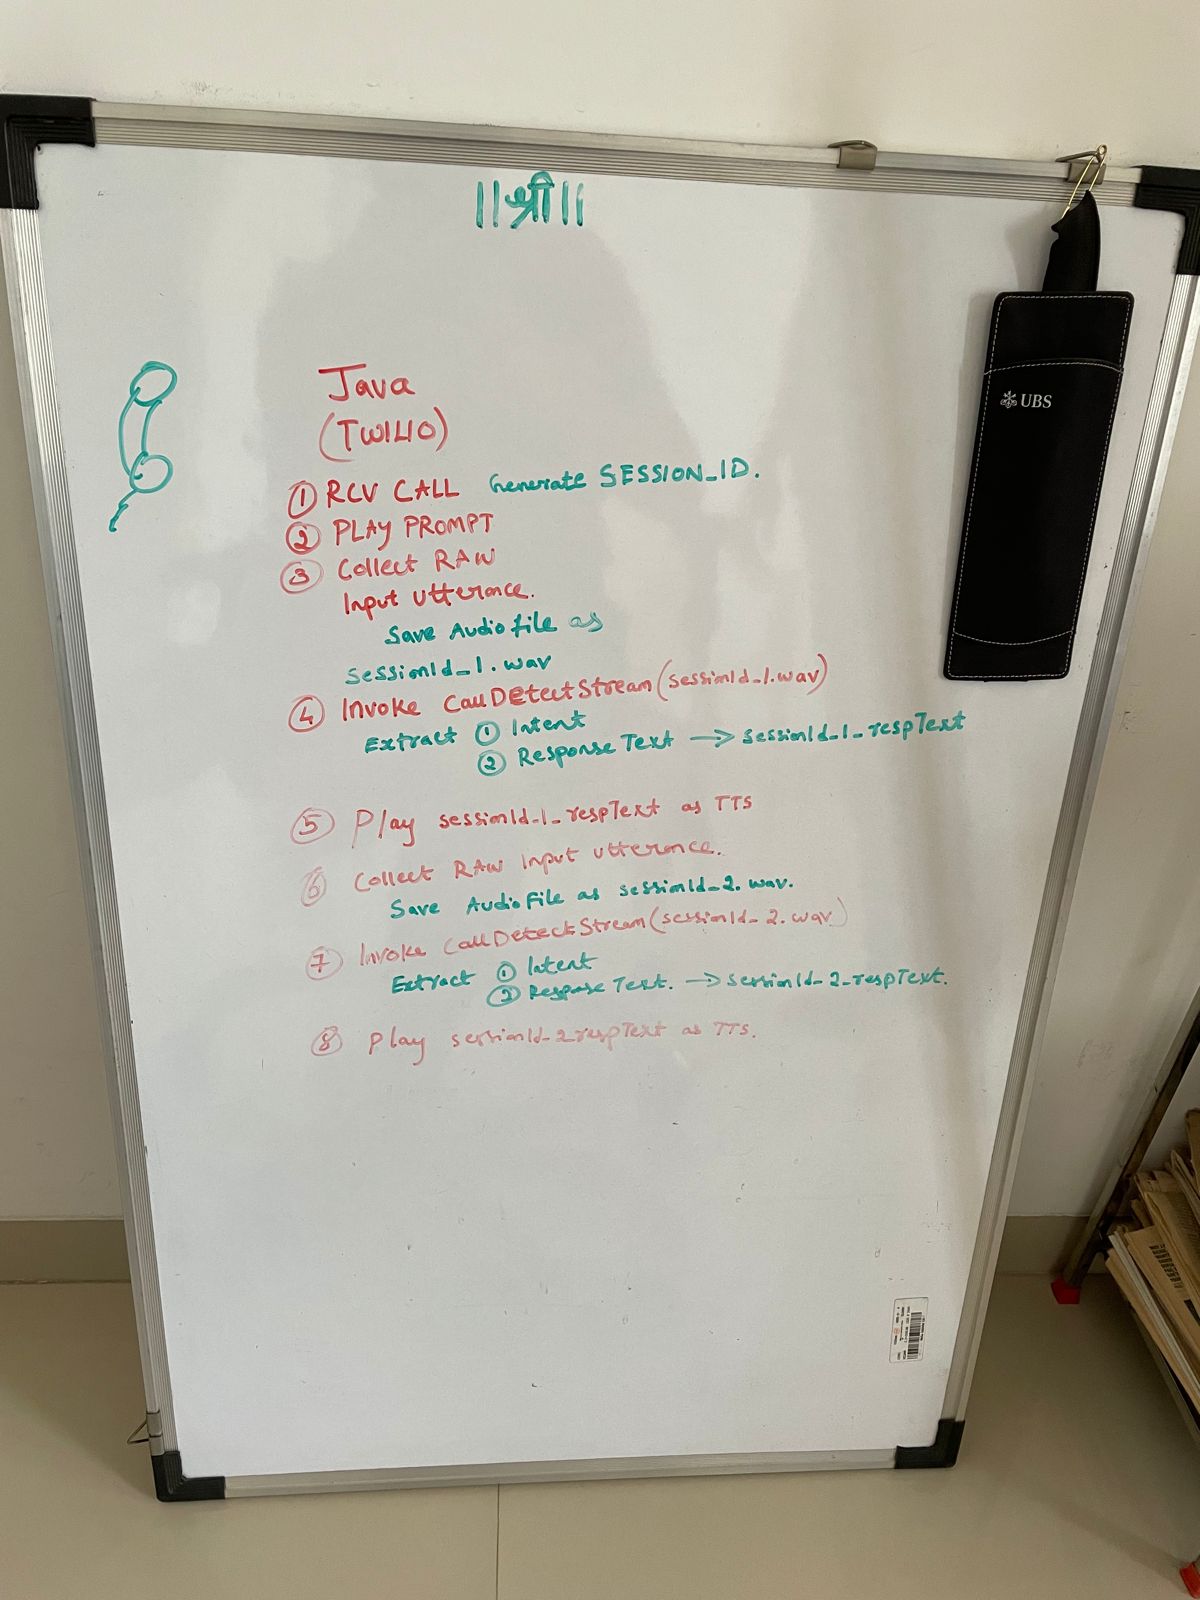 ||श्री||
Java
(TWILIO)
① RCV CALL Generate SESSION_ID.
② PLAY PROMPT
③ Collect RAW
Input utterance.
Save Audio file as
sessionId_1.wav
④ Invoke CallDetectStream(sessionId_1.wav)
Extract ① Intent
② Response Text → sessionId_1_respText
⑤ Play sessionId_1_respText as TTS
⑥ Collect RAW Input utterance.
Save AudioFile as sessionId_2.wav.
⑦ Invoke CallDetectStream(sessionId_2.wav)
Extract ① Intent
② Response Text. → sessionId_2_respText.
⑧ Play sessionId_2respText as TTS.
UBS